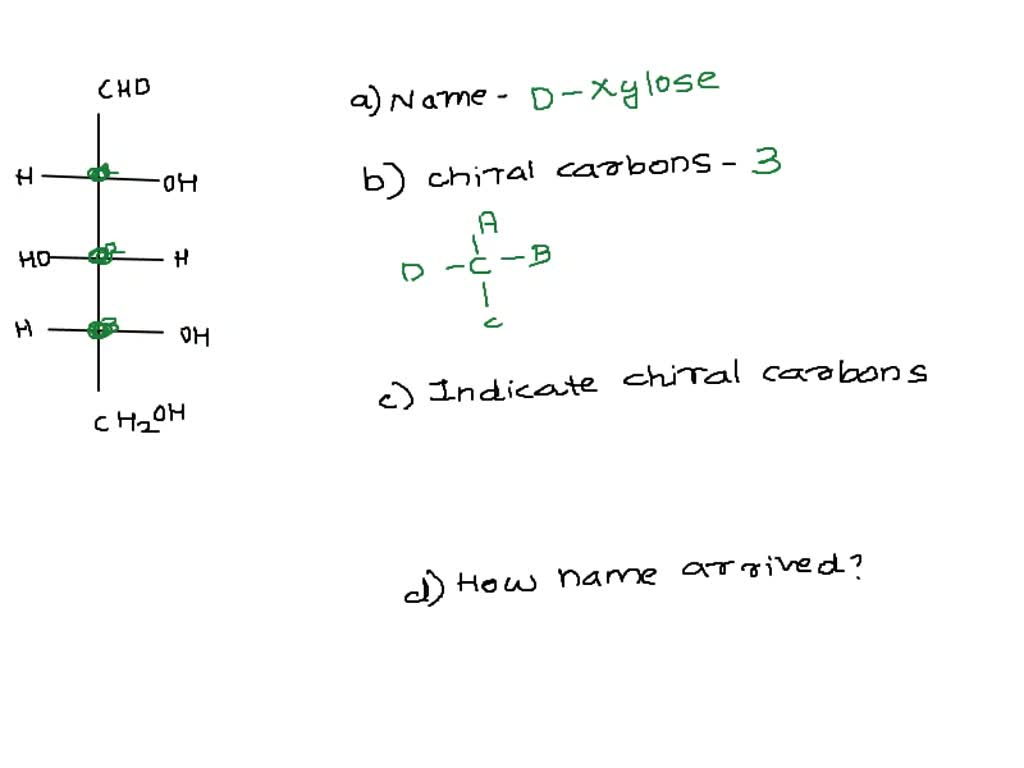 CHO
H OH
HO H
H OH
CH2OH
a) Name - D-xylose
b) chiral carbons - 3
A
D - C - B
C
c) Indicate chiral carbons
d) How name arrived?